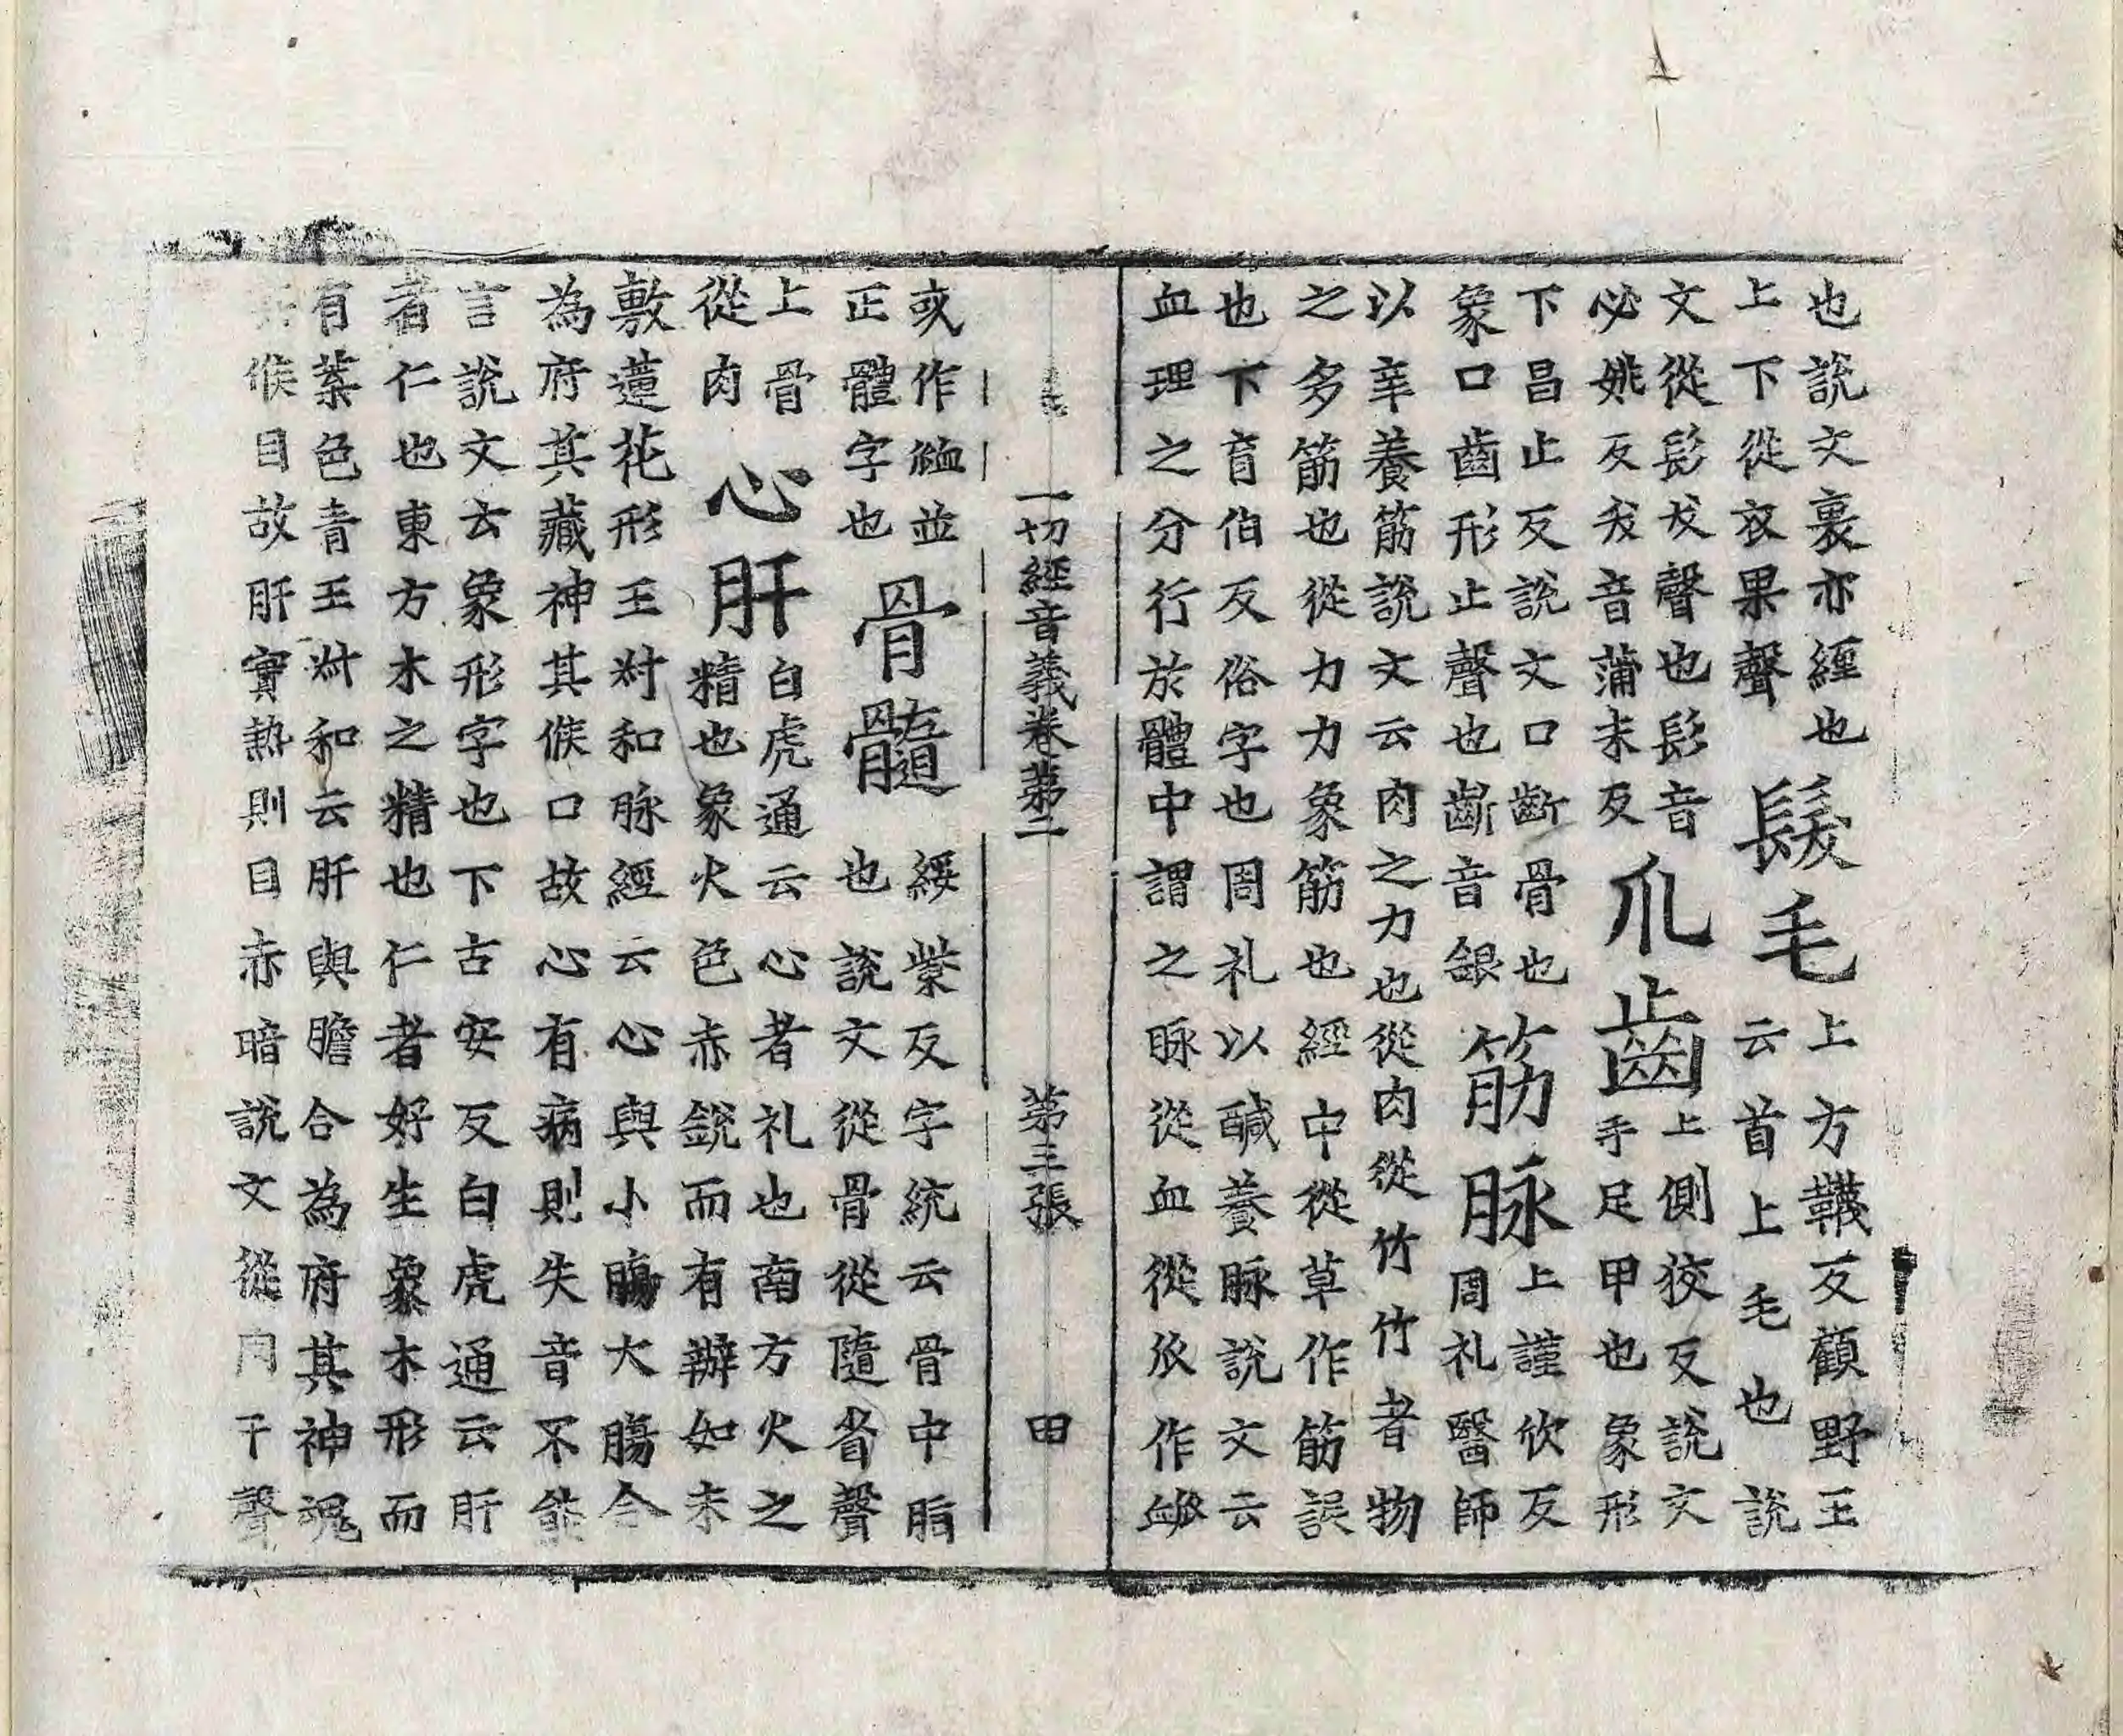 也說文裏亦經也
上下從衣果聲
髮毛
上方韈反顧野王
云首上毛也說
文從髟犮聲也髟音
必姚反犮音蒲末反
爪齒
上側狡反說文
手足甲也象形
下昌止反說文口齗骨也
象口齒形止聲也齗音銀
筋脉
上謹欣反
周礼醫師
以辛養筋說文云肉之力也從肉從竹竹者物
之多筋也從力力象筋也經中從草作筋誤
也下盲伯反俗字也周礼以醎養脉說文云
血理之分行於體中謂之脉從血從𠂢作衇
一切經音義卷苐二 苐三張 田
或作䘑並
正體字也
骨髓
綏紫反字統云骨中脂
也說文從骨從隨省聲
上骨
從肉
心肝
白虎通云心者礼也南方火之
精也象火色赤銳而有辦如未
敷蓮花形王叔和脉經云心與小膓大膓合
為府其藏神其候口故心有病則失音不能
言說文云象形字也下古安反白虎通云肝
者仁也東方木之精也仁者好生象木形而
有葉色青王叔和云肝與膽合為府其神魂
其候目故肝實熱則目赤暗說文從肉干聲